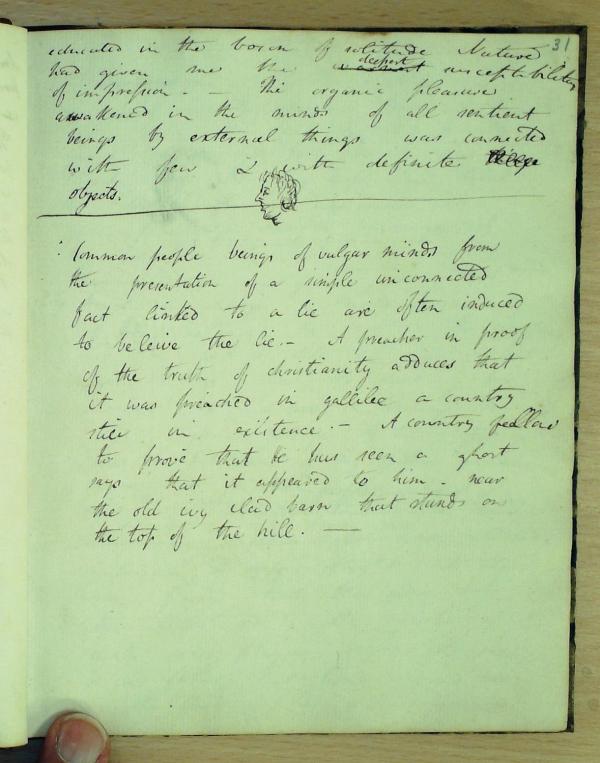 31
educated in the bosom of solitude Nature
had given me the warmest deepest susceptibility
of impression. — The organic pleasure
awakened in the minds of all sentient
beings by external things was connected
with few & with definite
objects.
Common people beings of vulgar minds from
the presentation of a simple unconnected
fact linked to a lie are often induced
to beleive the lie. — A preacher in proof
of the truth of christianity adduces that
it was preached in gallilee a country
still in existence. — A country fellow
to prove that he has seen a ghost
says that it appeared to him - near
the old ivy clad barn that stands on
the top of the hill. —